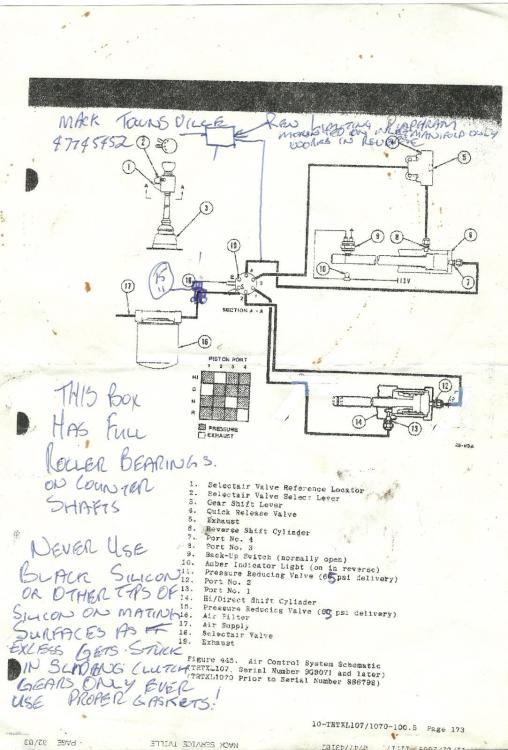 MACK TOWNSVILLE
47745452
REV LIMITING DIAPHRAM
MOUNTED ON INLET MANIFOLD ONLY
WORKS IN REVERSE
2
1
A A
3
5
9
8
6
10
12V
7
19
18
15
11
SECTION A-A
17
16
PISTON PORT
1 2 3 4
HI
D
N
R
PRESSURE
EXHAUST
12
14
13
THIS BOX
HAS FULL
ROLLER BEARINGS.
ON COUNTER
SHAFTS
NEVER USE
BLACK SILICON
OR OTHER TYPS OF
SILICON ON MATING
SURFACES AS IT
EXCESS GETS STUCK
IN SLIDING CLUTCH
GEARS ONLY EVER
USE PROPER GASKETS!
1. Selectair Valve Reference Locator
2. Selectair Valve Select Lever
3. Gear Shift Lever
4. Quick Release Valve
5. Exhaust
6. Reverse Shift Cylinder
7. Port No. 4
8. Port No. 3
9. Back-Up Switch (normally open)
10. Amber Indicator Light (on in reverse)
11. Pressure Reducing Valve (65 psi delivery)
12. Port No. 2
13. Port No. 1
14. Hi/Direct Shift Cylinder
15. Pressure Reducing Valve (85 psi delivery)
16. Air Filter
17. Air Supply
18. Selectair Valve
19. Exhaust
Figure 445. Air Control System Schematic
(TRTXL107, Serial Number 9G8071 and later)
(TRTXL1070 Prior to Serial Number 8S6792)
10-TRTXL107/1070-100.5 Page 173
MACK SERVICE TVILLE
PAGE 02/03